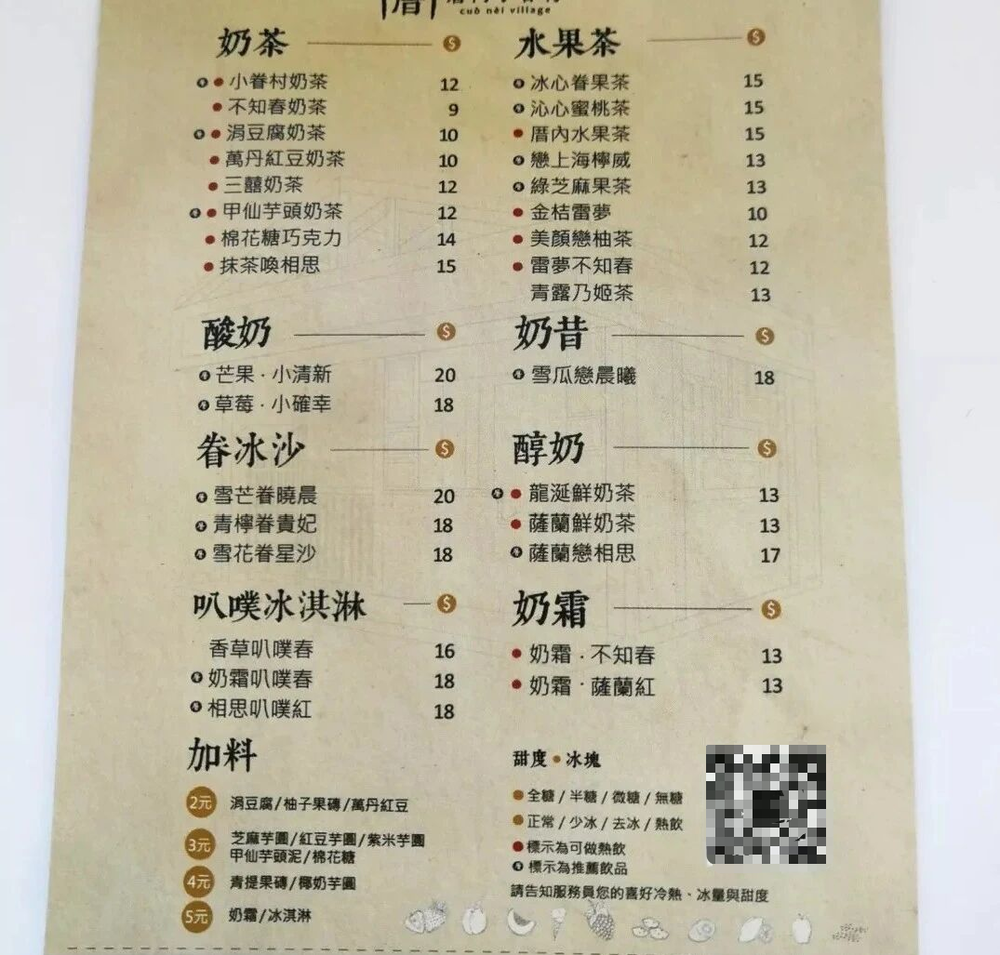 cuò nèi village
奶茶 $
小眷村奶茶 12
不知春奶茶 9
涓豆腐奶茶 10
萬丹紅豆奶茶 10
三囍奶茶 12
甲仙芋頭奶茶 12
棉花糖巧克力 14
抹茶喚相思 15
酸奶 $
芒果·小清新 20
草莓·小確幸 18
眷冰沙 $
雪芒眷曉晨 20
青檸眷貴妃 18
雪花眷星沙 18
叭噗冰淇淋 $
香草叭噗春 16
奶霜叭噗春 18
相思叭噗紅 18
加料
2元 涓豆腐/柚子果磚/萬丹紅豆
3元 芝麻芋圓/紅豆芋圓/紫米芋圓
甲仙芋頭泥/棉花糖
4元 青提果磚/椰奶芋圓
5元 奶霜/冰淇淋
水果茶 $
冰心眷果茶 15
沁心蜜桃茶 15
厝內水果茶 15
戀上海檸威 13
綠芝麻果茶 13
金桔雷夢 10
美顏戀柚茶 12
雷夢不知春 12
青露乃姬茶 13
奶昔 $
雪瓜戀晨曦 18
醇奶 $
龍涎鮮奶茶 13
薩蘭鮮奶茶 13
薩蘭戀相思 17
奶霜 $
奶霜·不知春 13
奶霜·薩蘭紅 13
甜度•冰塊
全糖/半糖/微糖/無糖
正常/少冰/去冰/熱飲
標示為可做熱飲
標示為推薦飲品
請告知服務員您的喜好冷熱、冰量與甜度